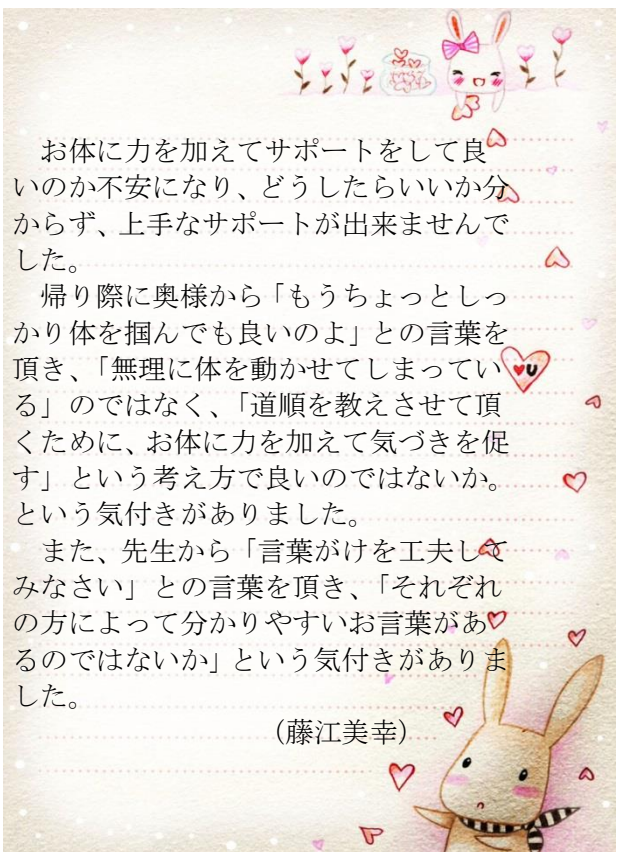 お体に力を加えてサポートをして良
いのか不安になり、どうしたらいいか分
からず、上手なサポートが出来ませんで
した。
帰り際に奥様から「もうちょっとしっ
かり体を掴んでも良いのよ」との言葉を
頂き、「無理に体を動かせてしまってい
る」のではなく、「道順を教えさせて頂
くために、お体に力を加えて気づきを促
す」という考え方で良いのではないか。
という気付きがありました。
また、先生から「言葉がけを工夫して
みなさい」との言葉を頂き、「それぞれ
の方によって分かりやすいお言葉があ
るのではないか」という気付きがありま
した。
(藤江美幸)
U